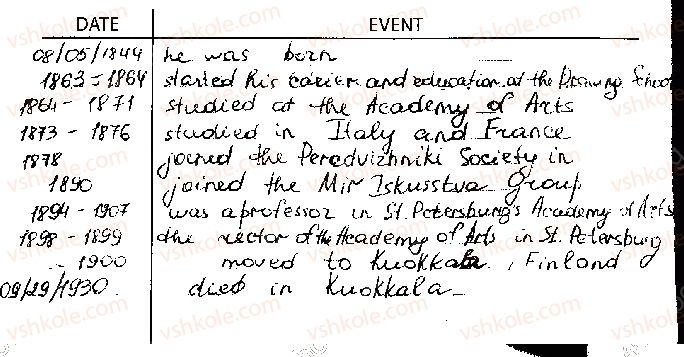 DATE EVENT
08/05/1844 he was born
1863-1864 started his carier and education at the Drawing School
1864-1871 studied at the Academy of Arts
1873-1876 studied in Italy and France
1878 joined the Peredvizhniki Society in
1890 joined the Mir Iskusstva Group
1894-1907 was a professor in St. Petersburg's Academy of Arts
1898-1899 the rector of the Academy of Arts in St. Petersburg
- 1900 moved to Kuokkala, Finland
09/29/1930 died in Kuokkala